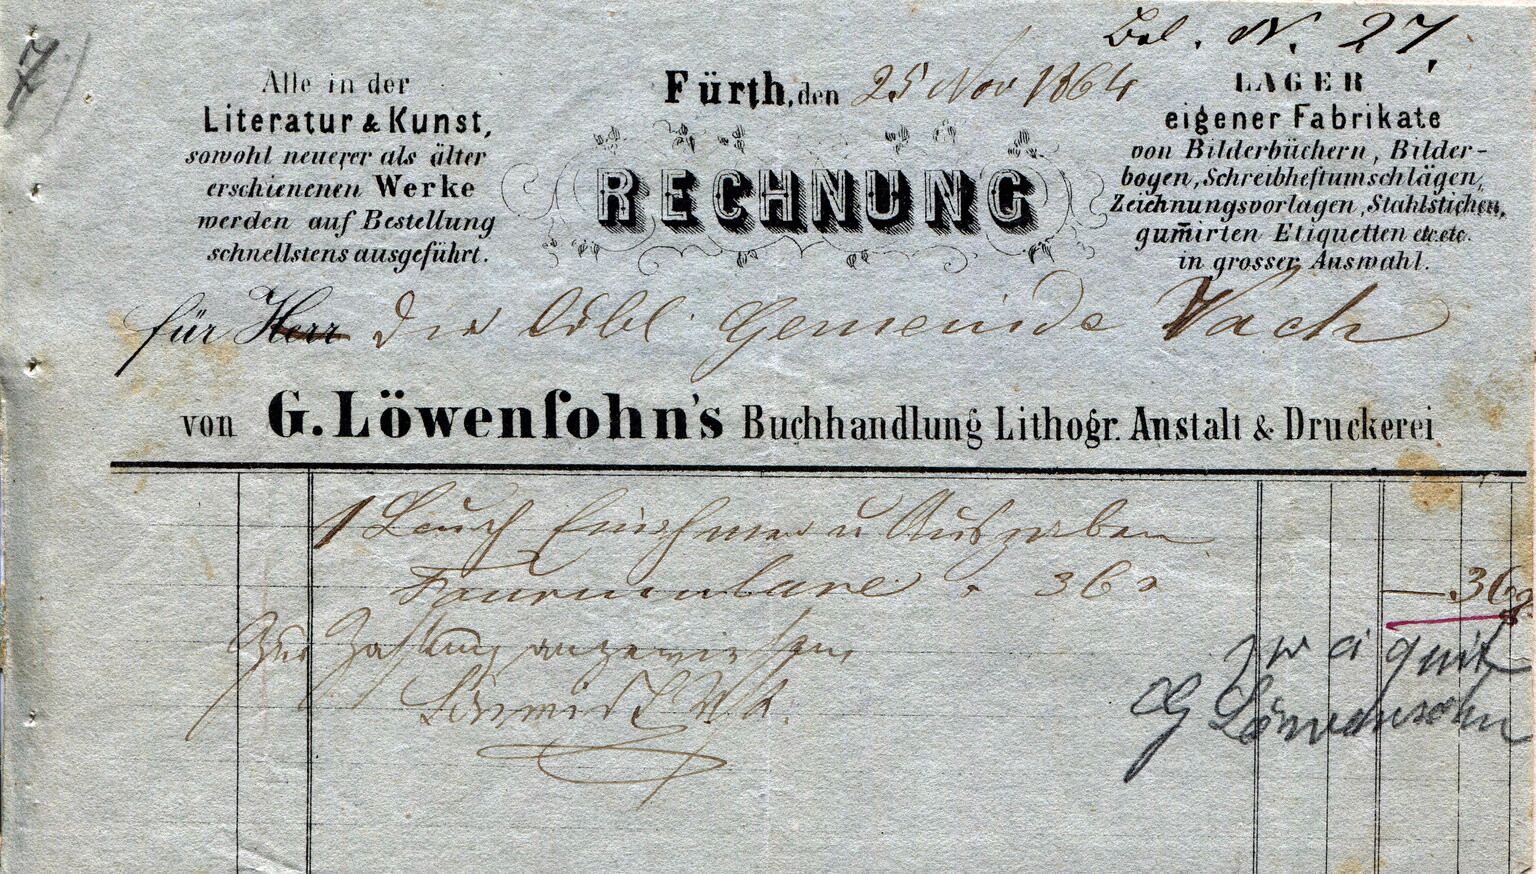 7)
Bel. N. 27,
Alle in der
Literatur & Kunst,
sowohl neuerer als älter
erschienenen Werke
werden auf Bestellung
schnellstens ausgeführt.
Fürth, den 25 Nov 1864
RECHNUNG
LAGER
eigener Fabrikate
von Bilderbüchern, Bilder-
bogen, Schreibheftumschlägen,
Zeichnungsvorlagen, Stahlstichen,
gum̄irten Etiquetten etc. etc.
in grosser Auswahl.
für Herr Die löbl. Gemeinde Vach
von G. Löwenſohn's Buchhandlung Lithogr. Anstalt & Druckerei
1 Buch Einnahmen u Ausgaben
Formulare 36
— 36
Zur Zahlung angewiesen
quit
G Löwensohn